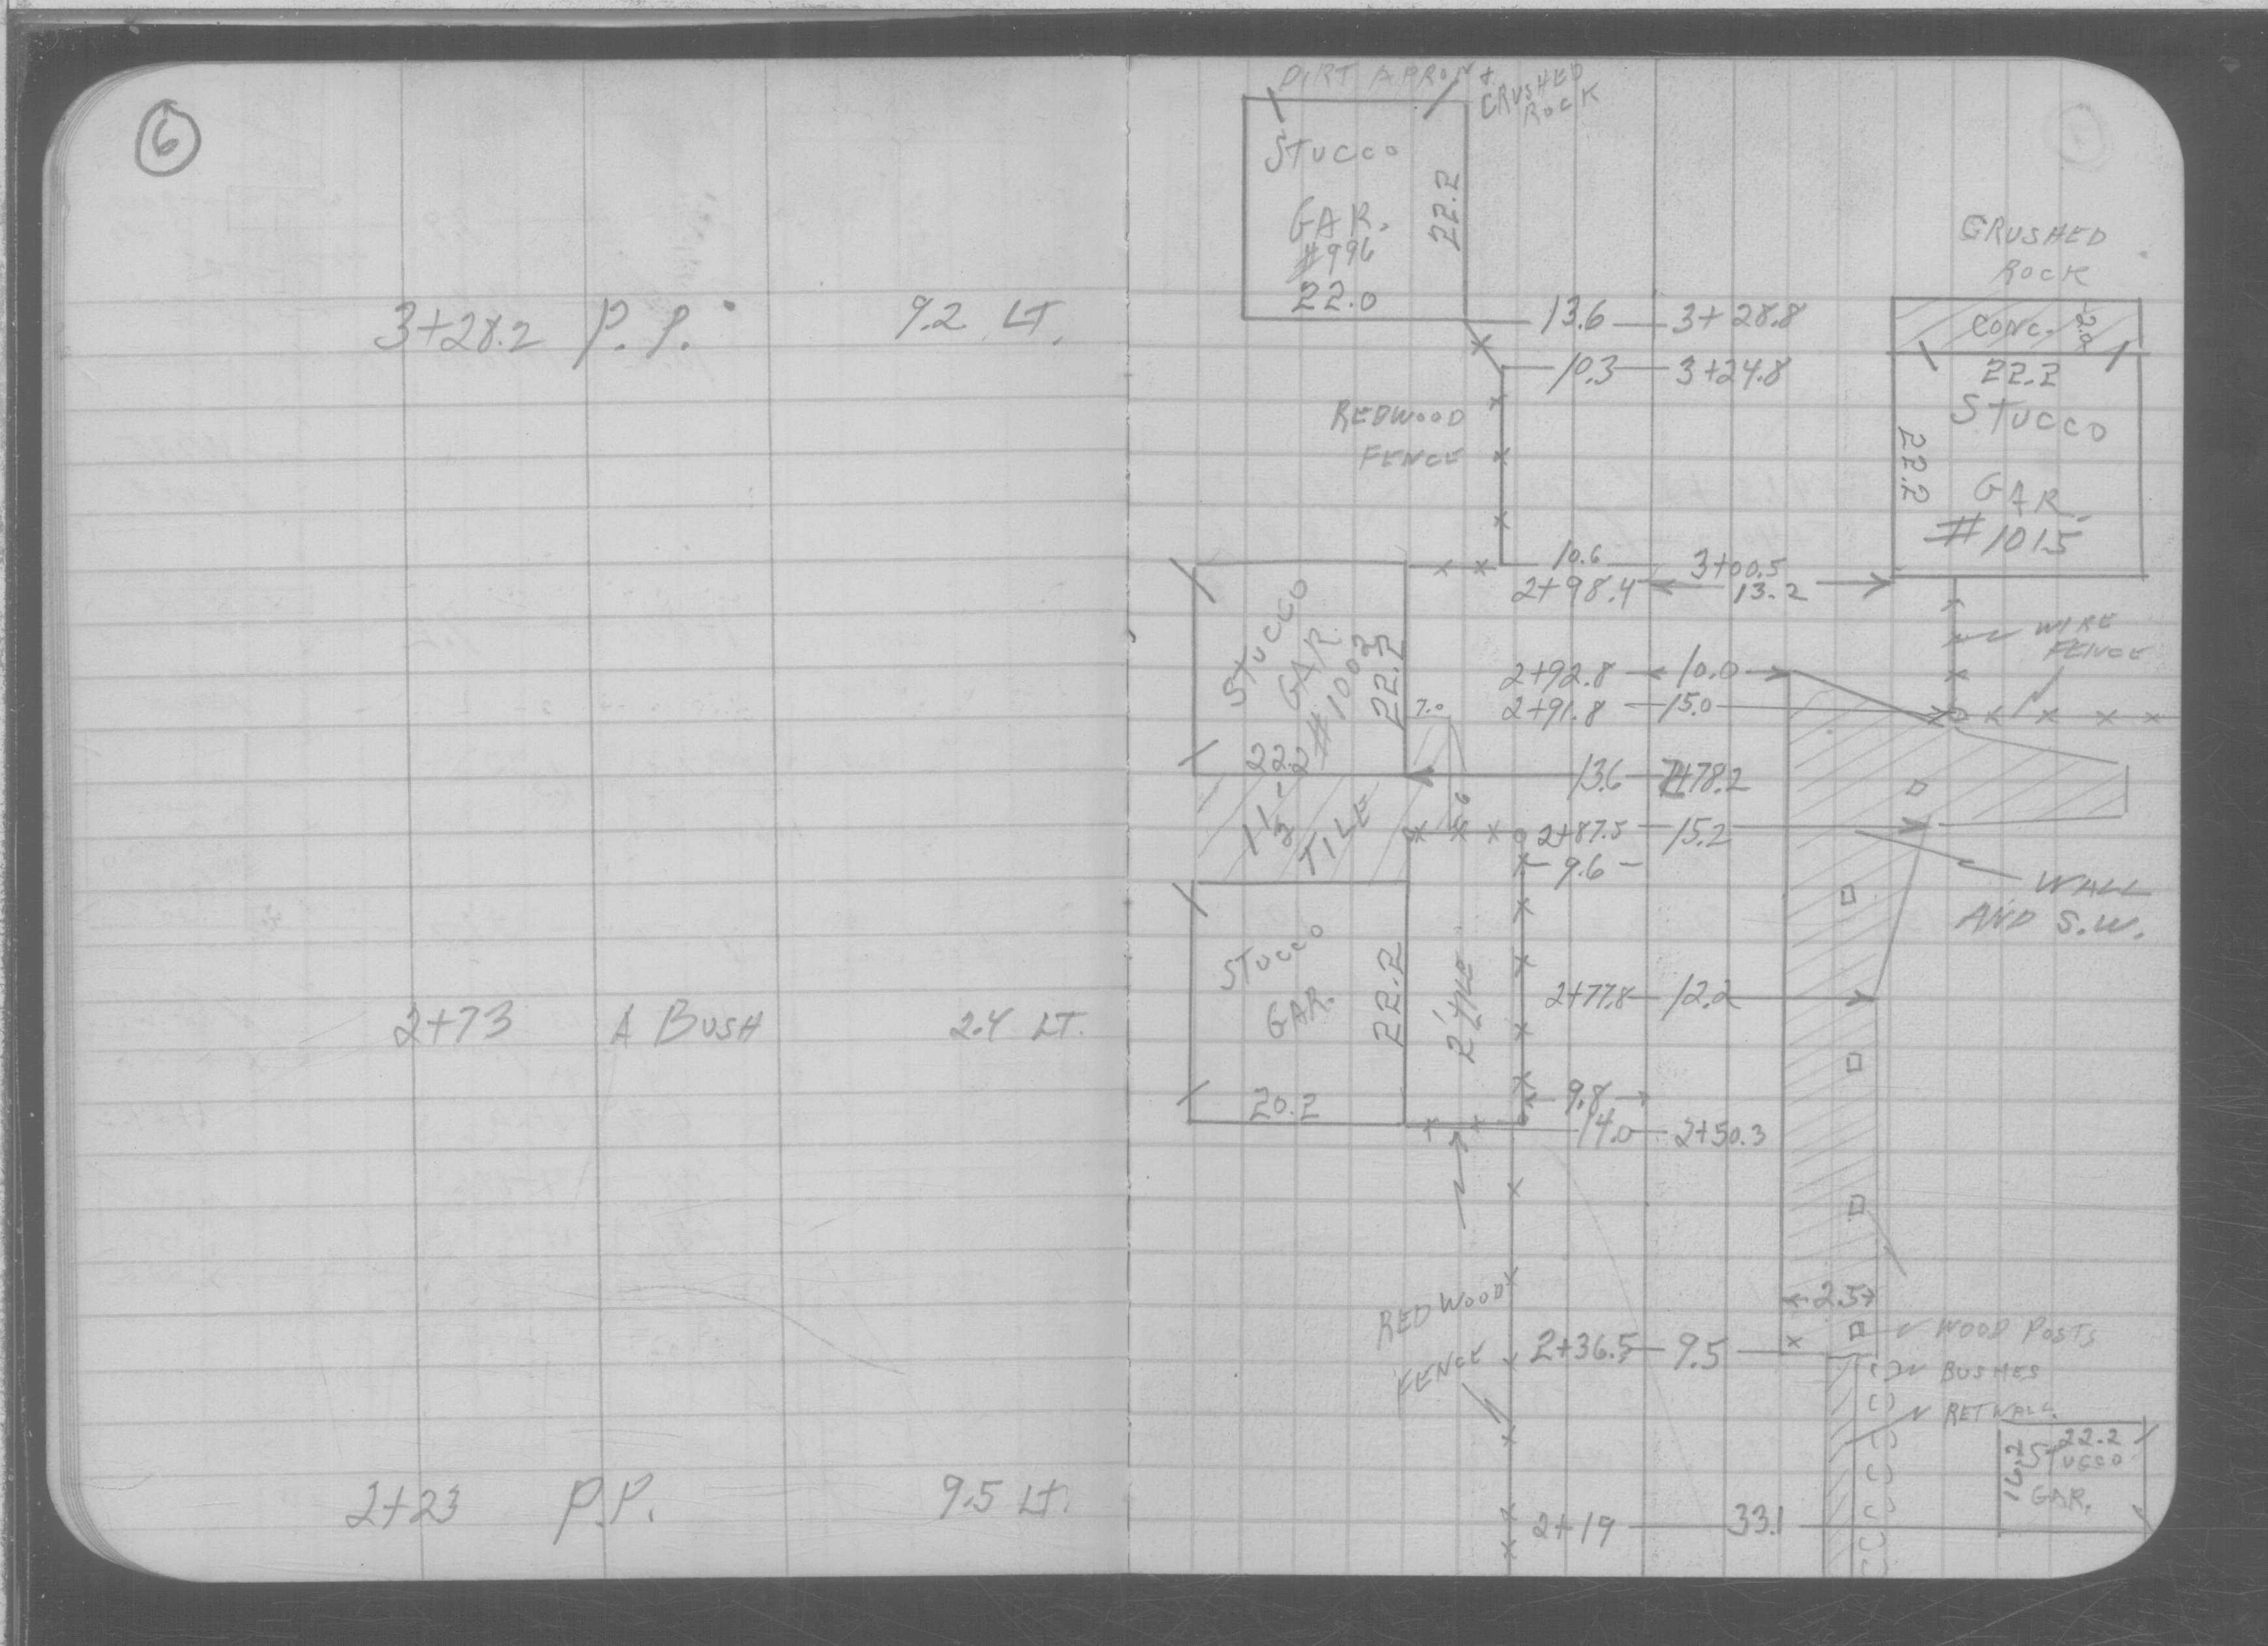 6
3+28.2 P.P. 9.2 LT.
2+73 A BUSH 2.4 LT.
2+23 P.P. 9.5 LT.
DIRT APRON +
CRUSHED
ROCK
STUCCO
GAR.
#996
22.0
22.2
13.6 3+28.8
10.3 3+24.8
REDWOOD
FENCE
CRUSHED
ROCK
CONC.
22.2
STUCCO
22.2
GAR.
#1015
10.6 3+00.5
2+98.4 13.2
STUCCO
GAR
22.2
22.2
WIRE
FENCE
2+92.8 10.0
2+91.8 15.0
7.0
13.6 2+78.2
TILE
2+87.5 15.2
9.6
WALL
AND S.W.
STUCCO
GAR.
22.2
20.2
2' TILE
2+77.8 12.2
9.8
14.0 2+50.3
2.5
REDWOOD
FENCE
2+36.5 9.5
WOOD POSTS
BUSHES
RETWALL
22.2
16.2
STUCCO
GAR.
2+19 33.1